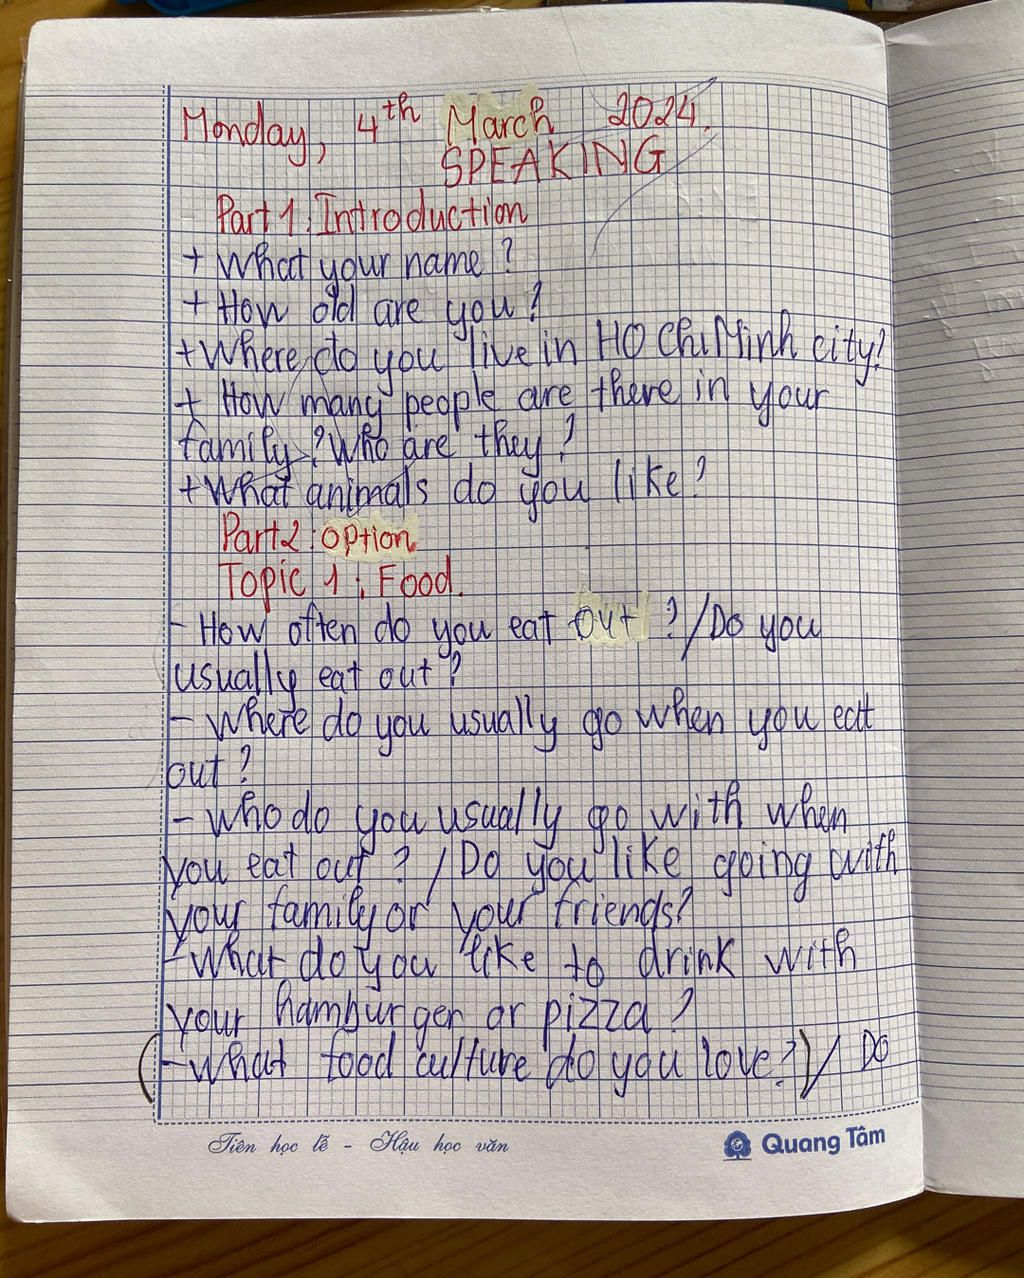 Monday, 4th March 2024.
SPEAKING
Part 1: Introduction
+ What your name?
+ How old are you?
+ Where do you live in HO Chi Minh city?
+ How many people are there in your
family? Who are they?
+ What animals do you like?
Part 2: Option
Topic 1: Food.
- How often do you eat out?/Do you
usually eat out?
- Where do you usually go when you eat
out?
- Who do you usually go with when
you eat out? / Do you like going with
your family or your friends?
- What do you like to drink with
your hamburger or pizza?
(- What food culture do you love?) / Do
Tiên học lễ - Hậu học văn
Quang Tâm